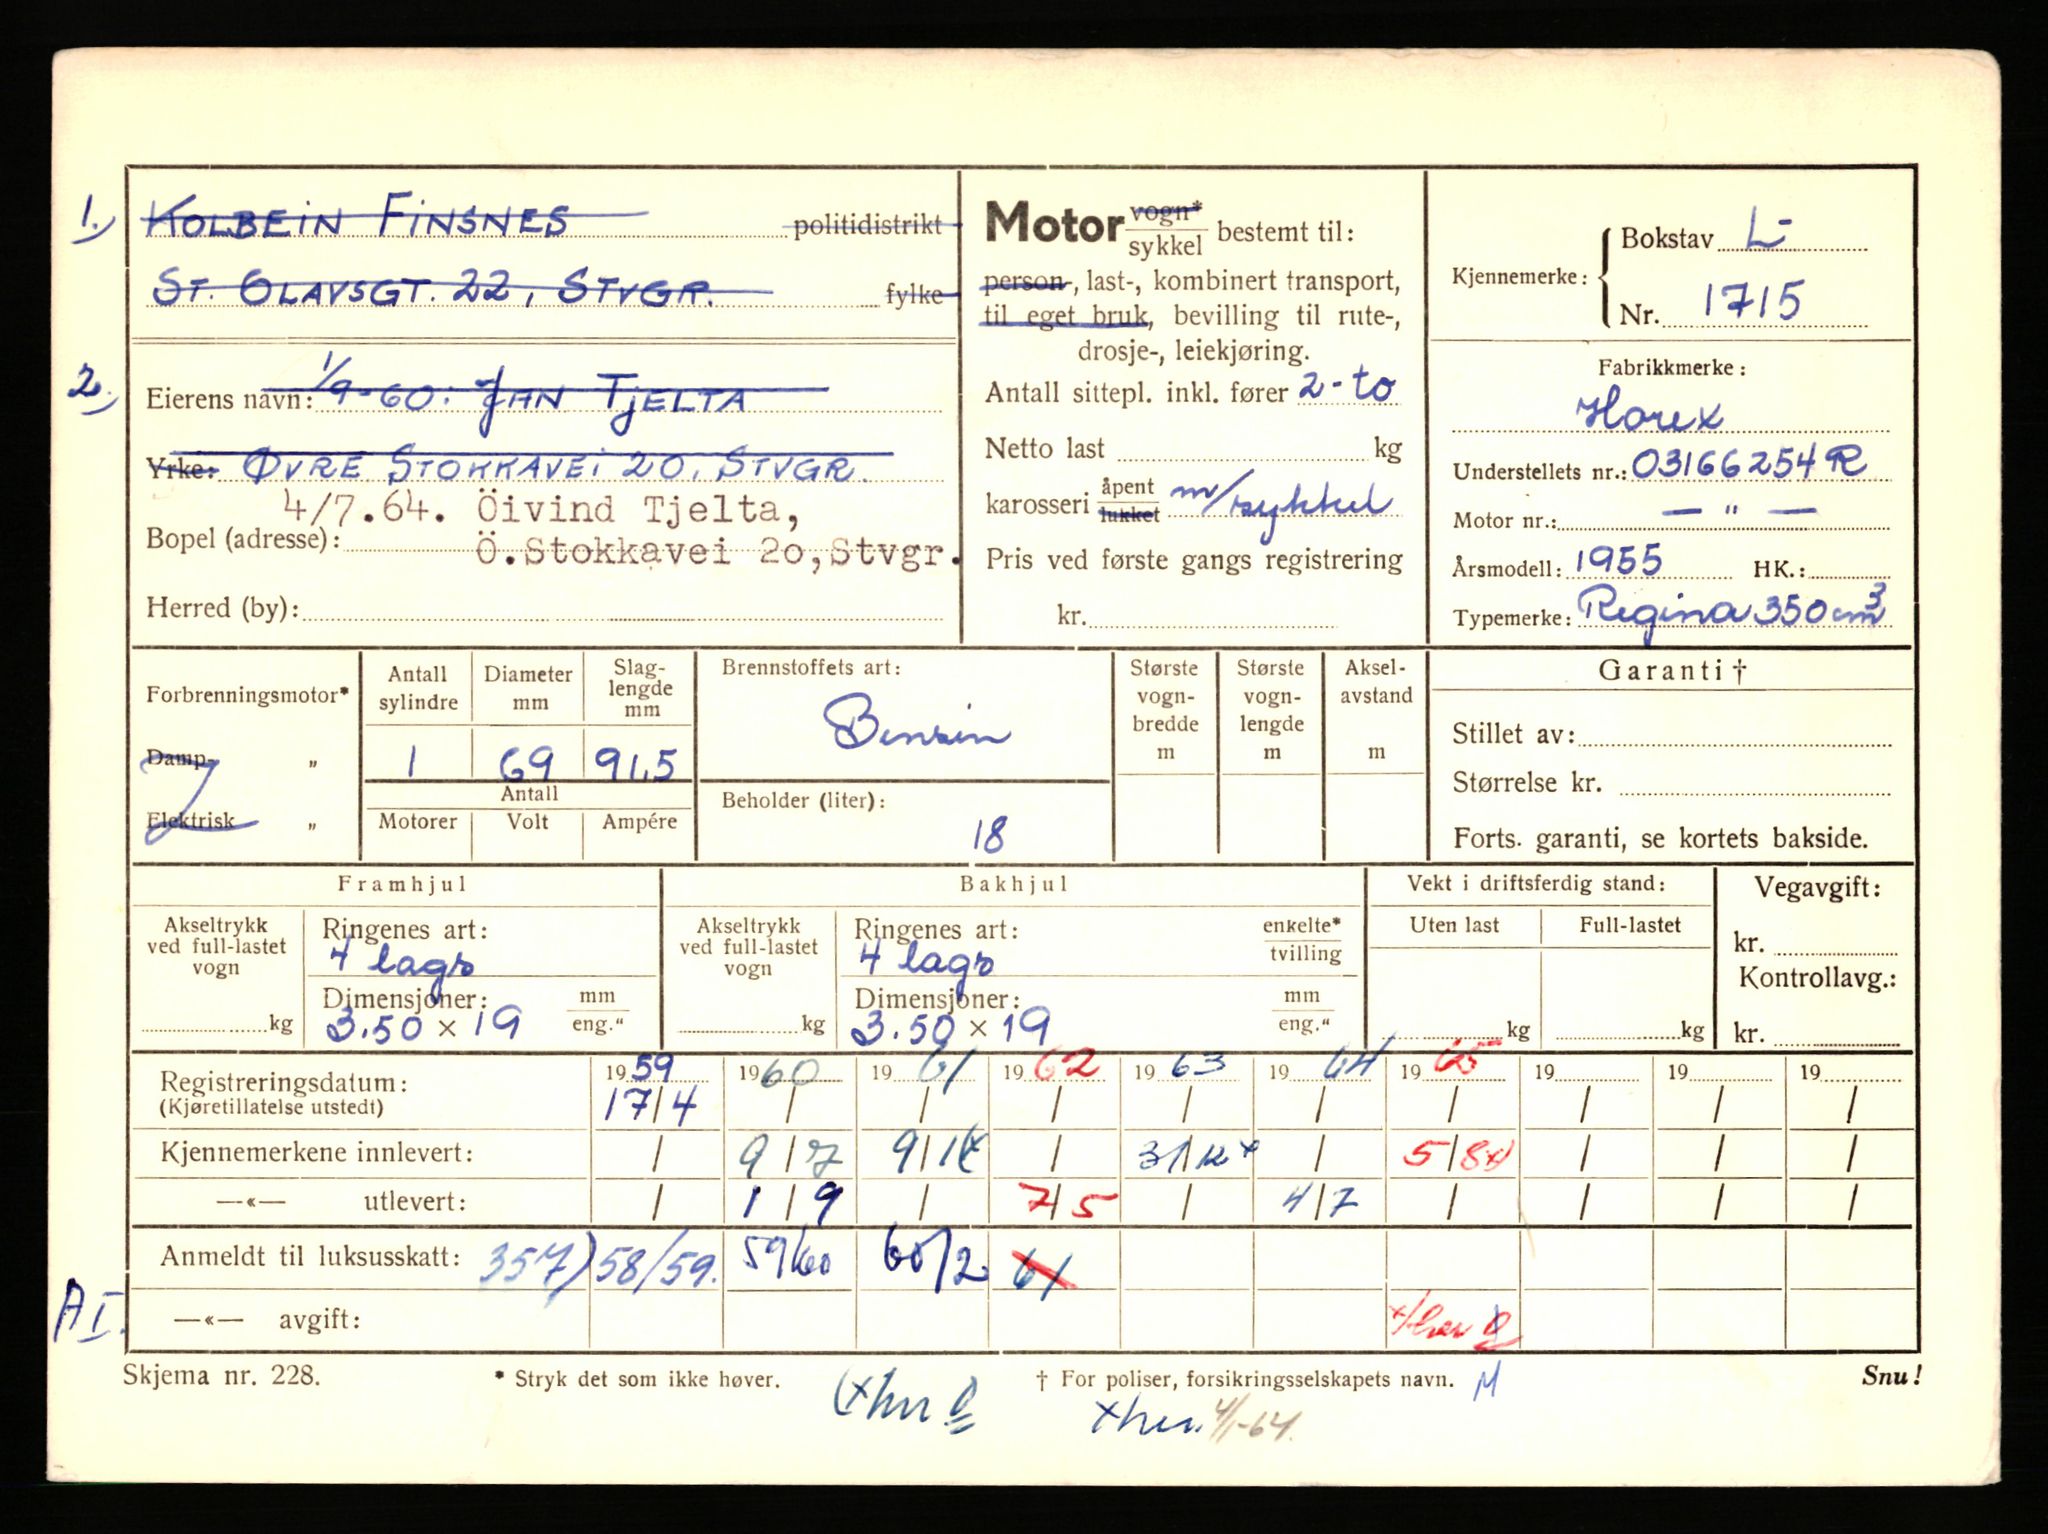 1. KOLBEIN FINSNES politidistrikt
ST. OLAVSGT. 22, STVGR. fylke
2. Eierens navn: 1/9-60: JAN TJELTA
Yrke: ØVRE STOKKAVEI 20, STVGR.
4/7.64. Öivind Tjelta,
Bopel (adresse): Ö.Stokkavei 2o,Stvgr.
Herred (by):
Motor vogn* sykkel bestemt til:
person-, last-, kombinert transport,
til eget bruk, bevilling til rute-,
drosje-, leiekjøring.
Antall sittepl. inkl. fører 2-to
Netto last kg
karosseri åpent lukket m/sykkel
Pris ved første gangs registrering
kr.
Kjennemerke: Bokstav L-
Nr. 1715
Fabrikkmerke:
Horex
Understellets nr.: 03166254 R
Motor nr.: — " —
Årsmodell: 1955 HK.:
Typemerke: Regina 350 cm3
Forbrenningsmotor*
Damp- "
Elektrisk "
Antall sylindre
Diameter mm
Slag-lengde mm
1 69 91,5
Antall
Motorer Volt Ampére
Brennstoffets art:
Bensin
Beholder (liter):
18
Største vogn-bredde m
Største vogn-lengde m
Aksel-avstand m
Garanti †
Stillet av:
Størrelse kr.
Forts. garanti, se kortets bakside.
Framhjul
Akseltrykk ved full-lastet vogn
kg
Ringenes art:
4 lags
Dimensjoner: mm eng."
3.50 × 19
Bakhjul
Akseltrykk ved full-lastet vogn
kg
Ringenes art: enkelte* tvilling
4 lags
Dimensjoner: mm eng."
3.50 × 19
Vekt i driftsferdig stand:
Uten last Full-lastet
kg kg
Vegavgift:
kr.
Kontrollavg.:
kr.
Registreringsdatum: 1959 1960 1961 1962 1963 1964 1965 19 19 19
(Kjøretillatelse utstedt) 17/4 / / / / / / / / /
Kjennemerkene innlevert: / 9/7 9/1 / 31/12 x / 5/8 x) / / /
—«— utlevert: / 1/9 / 7/5 / 4/7 / / / /
Anmeldt til luksusskatt: 357) 58/59. 59/60 60/2 61
A I. —«— avgift: x) her
Skjema nr. 228. * Stryk det som ikke høver. † For poliser, forsikringsselskapets navn. M Snu!
(x her x her. 4/1-64.